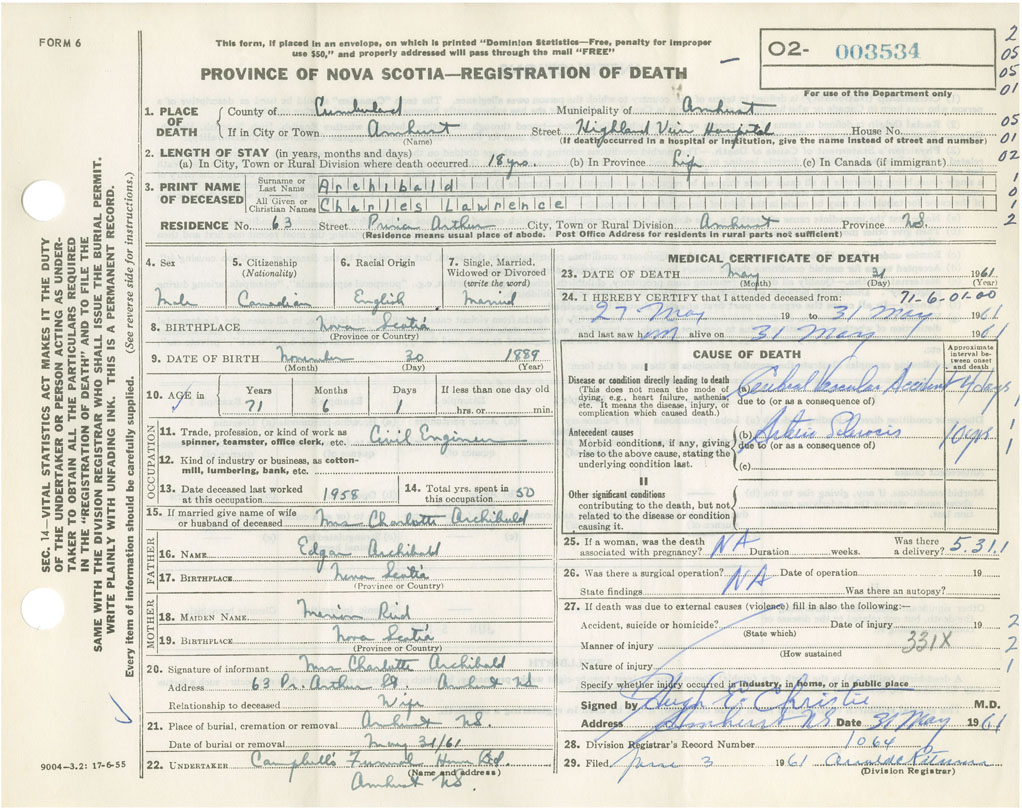 FORM 6
This form, if placed in an envelope, on which is printed "Dominion Statistics—Free, penalty for improper
use $50," and properly addressed will pass through the mail "FREE"
O2- 003534
For use of the Department only
PROVINCE OF NOVA SCOTIA—REGISTRATION OF DEATH
2
05
05
01
05
01
02
1
0
1
2
SEC. 14—VITAL STATISTICS ACT MAKES IT THE DUTY
OF THE UNDERTAKER OR PERSON ACTING AS UNDER-
TAKER TO OBTAIN ALL THE PARTICULARS REQUIRED
IN THE "REGISTRATION OF DEATH" AND TO FILE THE
SAME WITH THE DIVISION REGISTRAR WHO SHALL ISSUE THE BURIAL PERMIT.
WRITE PLAINLY WITH UNFADING INK. THIS IS A PERMANENT RECORD.
Every item of information should be carefully supplied. (See reverse side for instructions.)
1. PLACE OF DEATH County of Cumberland Municipality of Amherst
If in City or Town Amherst Street Highland View Hospital House No.
(Name) (If death occurred in a hospital or institution, give the name instead of street and number)
2. LENGTH OF STAY (in years, months and days)
(a) In City, Town or Rural Division where death occurred 18 yrs. (b) In Province Life (c) In Canada (if immigrant)
3. PRINT NAME OF DECEASED Surname or Last Name Archibald
All Given or Christian Names Charles Lawrence
RESIDENCE No. 63 Street Prince Arthur City, Town or Rural Division Amherst Province NS.
(Residence means usual place of abode. Post Office Address for residents in rural parts not sufficient)
4. Sex Male
5. Citizenship (Nationality) Canadian
6. Racial Origin English
7. Single, Married, Widowed or Divorced (write the word) Married
8. BIRTHPLACE Nova Scotia
(Province or Country)
9. DATE OF BIRTH November 30 1889
(Month) (Day) (Year)
10. AGE in Years 71 Months 6 Days 1 If less than one day old hrs. or min.
OCCUPATION
11. Trade, profession, or kind of work as spinner, teamster, office clerk, etc. Civil Engineer
12. Kind of industry or business, as cotton-mill, lumbering, bank, etc.
13. Date deceased last worked at this occupation 1958 14. Total yrs. spent in this occupation 50
15. If married give name of wife or husband of deceased Mrs Charlotte Archibald
FATHER
16. NAME Edgar Archibald
17. BIRTHPLACE Nova Scotia
(Province or Country)
MOTHER
18. MAIDEN NAME Marion Reid
19. BIRTHPLACE Nova Scotia
(Province or Country)
20. Signature of informant Mrs Charlotte Archibald
Address 63 Pr. Arthur St. Amherst NS
Relationship to deceased Wife
21. Place of burial, cremation or removal Amherst NS.
Date of burial or removal May 31/61
22. UNDERTAKER Campbell's Funeral Home Ltd
(Name and address)
Amherst NS.
9004—3.2: 17-6-55
MEDICAL CERTIFICATE OF DEATH
23. DATE OF DEATH May 31 1961
(Month) (Day) (Year)
24. I HEREBY CERTIFY that I attended deceased from: 71-6-01-00
27 May 19 to 31 May 1961
and last saw him alive on 31 May 1961
CAUSE OF DEATH
Approximate interval between onset and death
I
Disease or condition directly leading to death
(This does not mean the mode of dying, e.g., heart failure, asthenia, etc. It means the disease, injury, or complication which caused death.)
(a) Cerebral Vascular Accident 4 days
due to (or as a consequence of)
Antecedent causes
Morbid conditions, if any, giving rise to the above cause, stating the underlying condition last.
(b) Arterio Sclerosis 10 yrs
due to (or as a consequence of)
(c)
II
Other significant conditions
contributing to the death, but not related to the disease or condition causing it.
1
1
1
25. If a woman, was the death associated with pregnancy? NA Duration weeks. Was there a delivery? 5.31.1
26. Was there a surgical operation? NA Date of operation 19
State findings Was there an autopsy?
27. If death was due to external causes (violence) fill in also the following:—
Accident, suicide or homicide? Date of injury 19 2
(State which)
Manner of injury 331X 2
(How sustained)
Nature of injury 1
Specify whether injury occurred in industry, in home, or in public place
Signed by Hugh E Christie M.D.
Address Amherst N.S. Date 31 May 1961
28. Division Registrar's Record Number 1064
29. Filed June 3 1961
(Division Registrar)